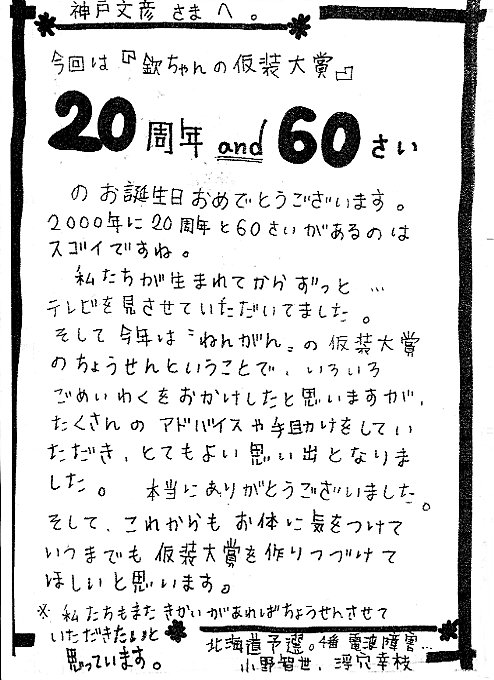 神戸文彦さまへ。
今回は『欽ちゃんの仮装大賞』
20周年and60さい
のお誕生日おめでとうございます。
2000年に20周年と60さいがあるのは
スゴイですね。
私たちが生まれてからずっと…
テレビを見させていただいてました。
そして今年は〝ねんがん〟の仮装大賞
のちょうせんということで、いろいろ
ごめいわくをおかけしたと思いますが、
たくさんのアドバイスや手助けをしてい
ただき、とてもよい思い出となりま
した。 本当にありがとうございました。
そして、これからもお体に気をつけて
いつまでも仮装大賞を作りつづけて
ほしいと思います。
※私たちもまたきかいがあればちょうせんさせて
いただきたいと
思っています。
北海道予選。4番 電波障害…
小野智世、浮穴幸枝